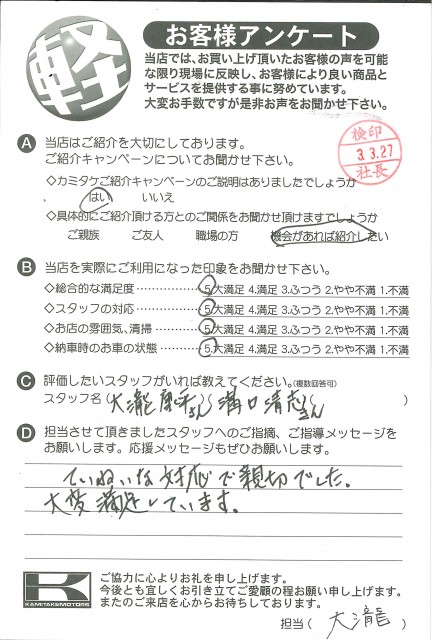 軽
お客様アンケート
当店では、お買い上げ頂いたお客様の声を可能
な限り現場に反映し、お客様により良い商品と
サービスを提供する事に努めています。
大変お手数ですが是非お声をお聞かせ下さい。
検印
3.3.27
社長
A 当店はご紹介を大切にしております。
ご紹介キャンペーンについてお聞かせ下さい。
◇カミタケご紹介キャンペーンのご説明はありましたでしょうか
はい いいえ
◇具体的にご紹介頂ける方とのご関係をお聞かせ頂けますでしょうか
ご親族 ご友人 職場の方 機会があれば紹介したい
B 当店を実際にご利用になった印象をお聞かせ下さい。
◇総合的な満足度 5.大満足 4.満足 3.ふつう 2.やや不満 1.不満
◇スタッフの対応 5.大満足 4.満足 3.ふつう 2.やや不満 1.不満
◇お店の雰囲気、清掃 5.大満足 4.満足 3.ふつう 2.やや不満 1.不満
◇納車時のお車の状態 5.大満足 4.満足 3.ふつう 2.やや不満 1.不満
C 評価したいスタッフがいれば教えてください。(複数回答可)
スタッフ名 ( 大瀧 さん 溝口清志さん )
D 担当させて頂きましたスタッフへのご指摘、ご指導メッセージを
お願いします。応援メッセージもぜひお願いします。
ていねいな対応で親切でした。
大変満足しています。
K
KAMITAKEMOTORS
ご協力に心よりお礼を申し上げます。
今後とも宜しくお引き立てご愛顧の程お願い申し上げます。
またのご来店を心からお待ちしております。
担当 ( 大瀧 )